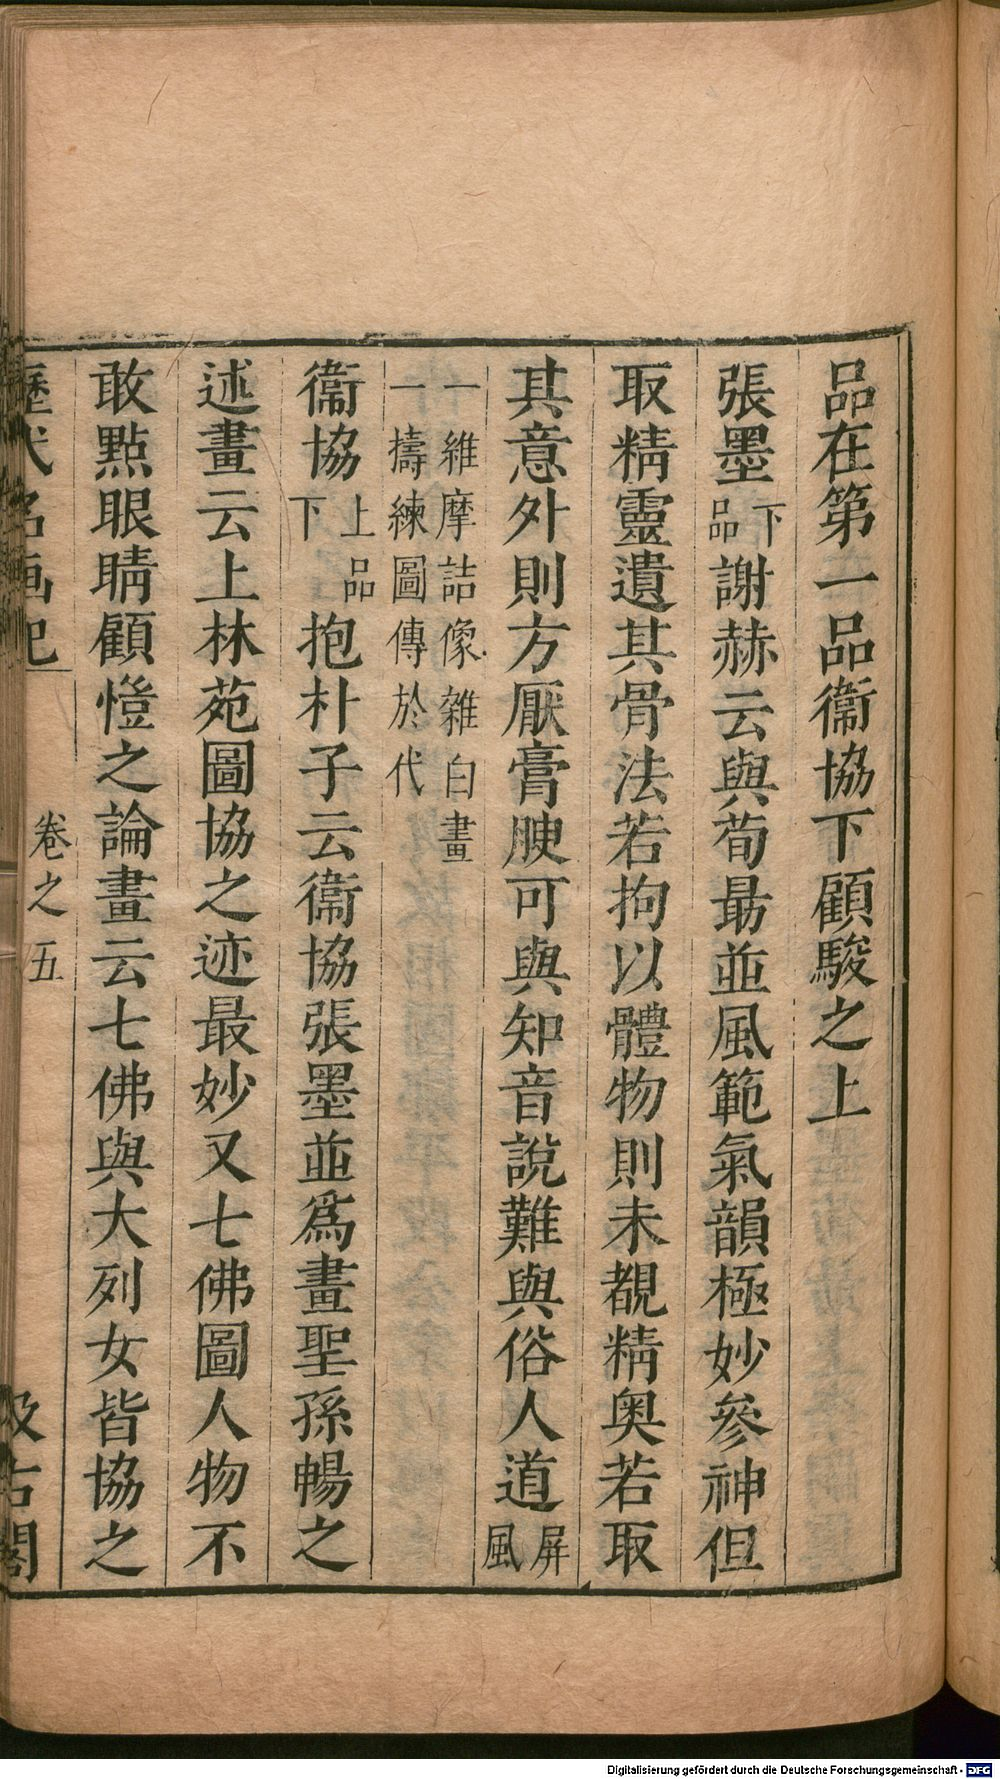 品在第一品衞協下顧駿之上
張墨下品謝赫云與荀勗並風範氣韻極妙參神但
取精靈遺其骨法若拘以體物則未覩精奥若取
其意外則方厭膏腴可與知音說難與俗人道屏風
一維摩詰像雜白畫
一擣練圖傳於代
衞協上品下抱朴子云衞協張墨並爲畫聖孫暢之
述畫云上林苑圖協之迹最妙又七佛圖人物不
敢點眼睛顧愷之論畫云七佛與大列女皆協之
歷代名画記 卷之五 汲古閣
Digitalisierung gefördert durch die Deutsche Forschungsgemeinschaft - DFG